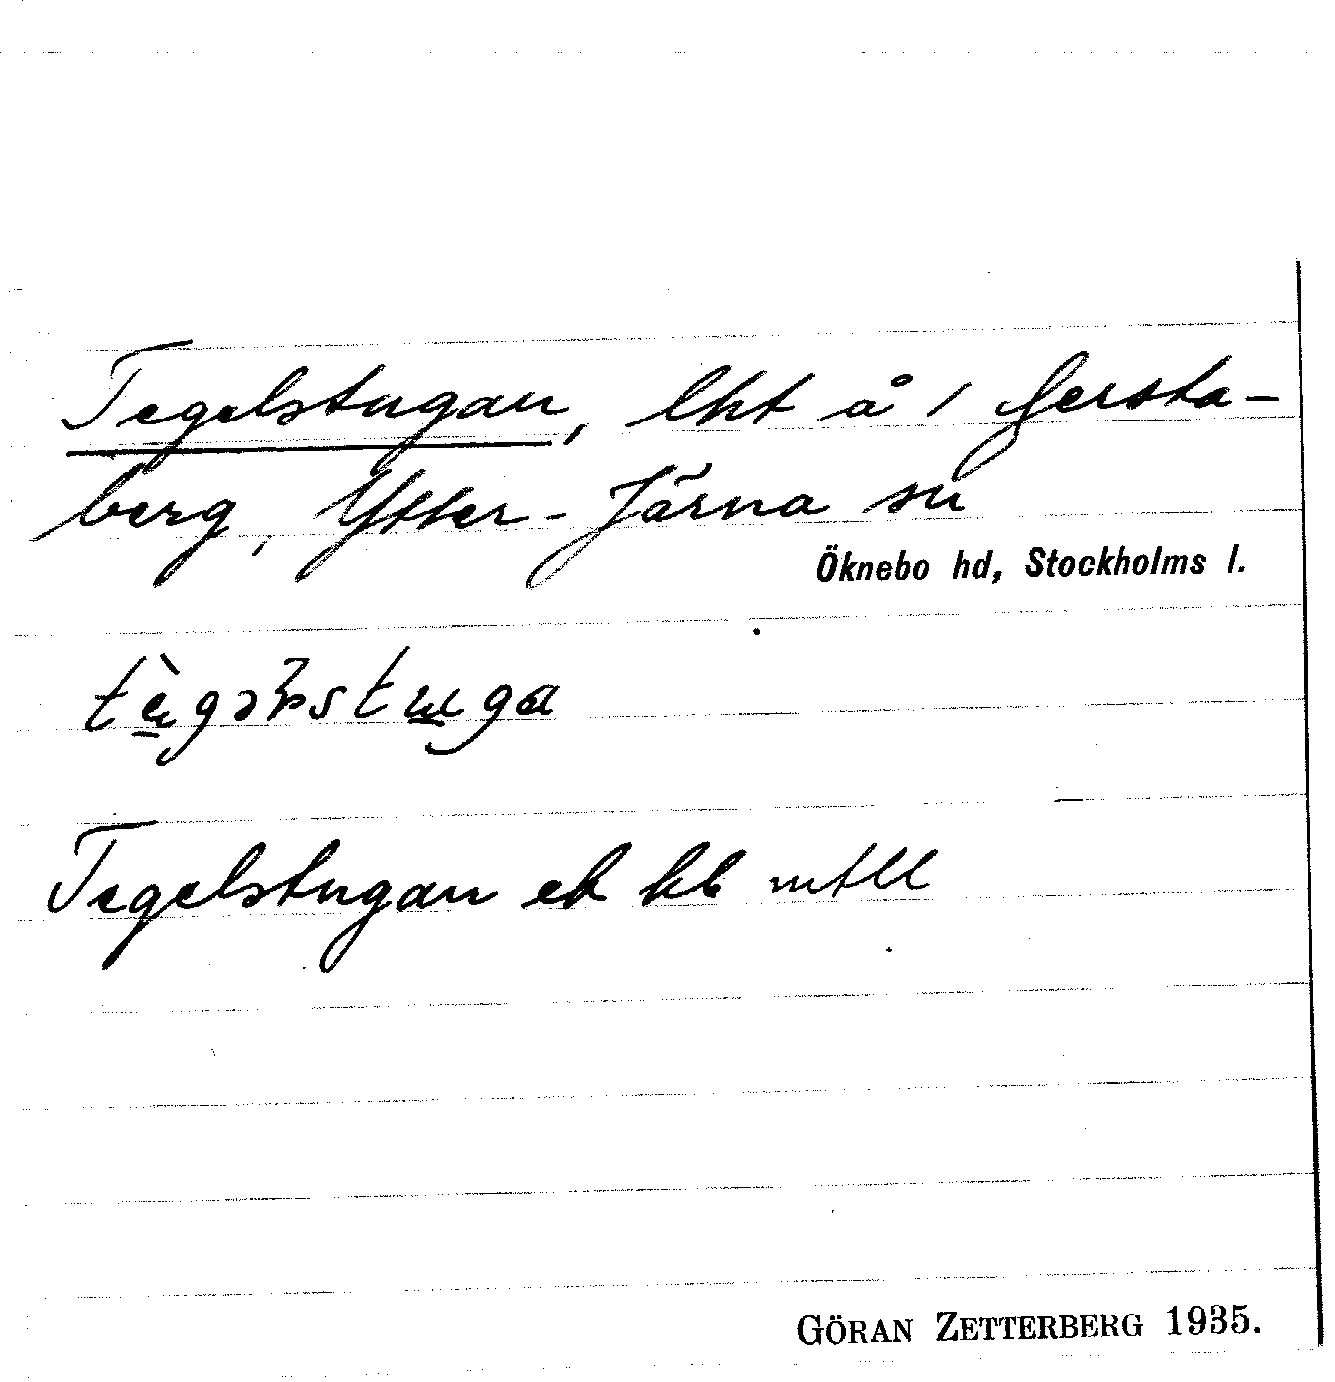 Tegelstugan, lht å 1 Gersta-
berg, Ytter-Järna sn
Öknebo hd, Stockholms l.
Tegelstugan ek kb mtll
GÖRAN ZETTERBERG 1935.